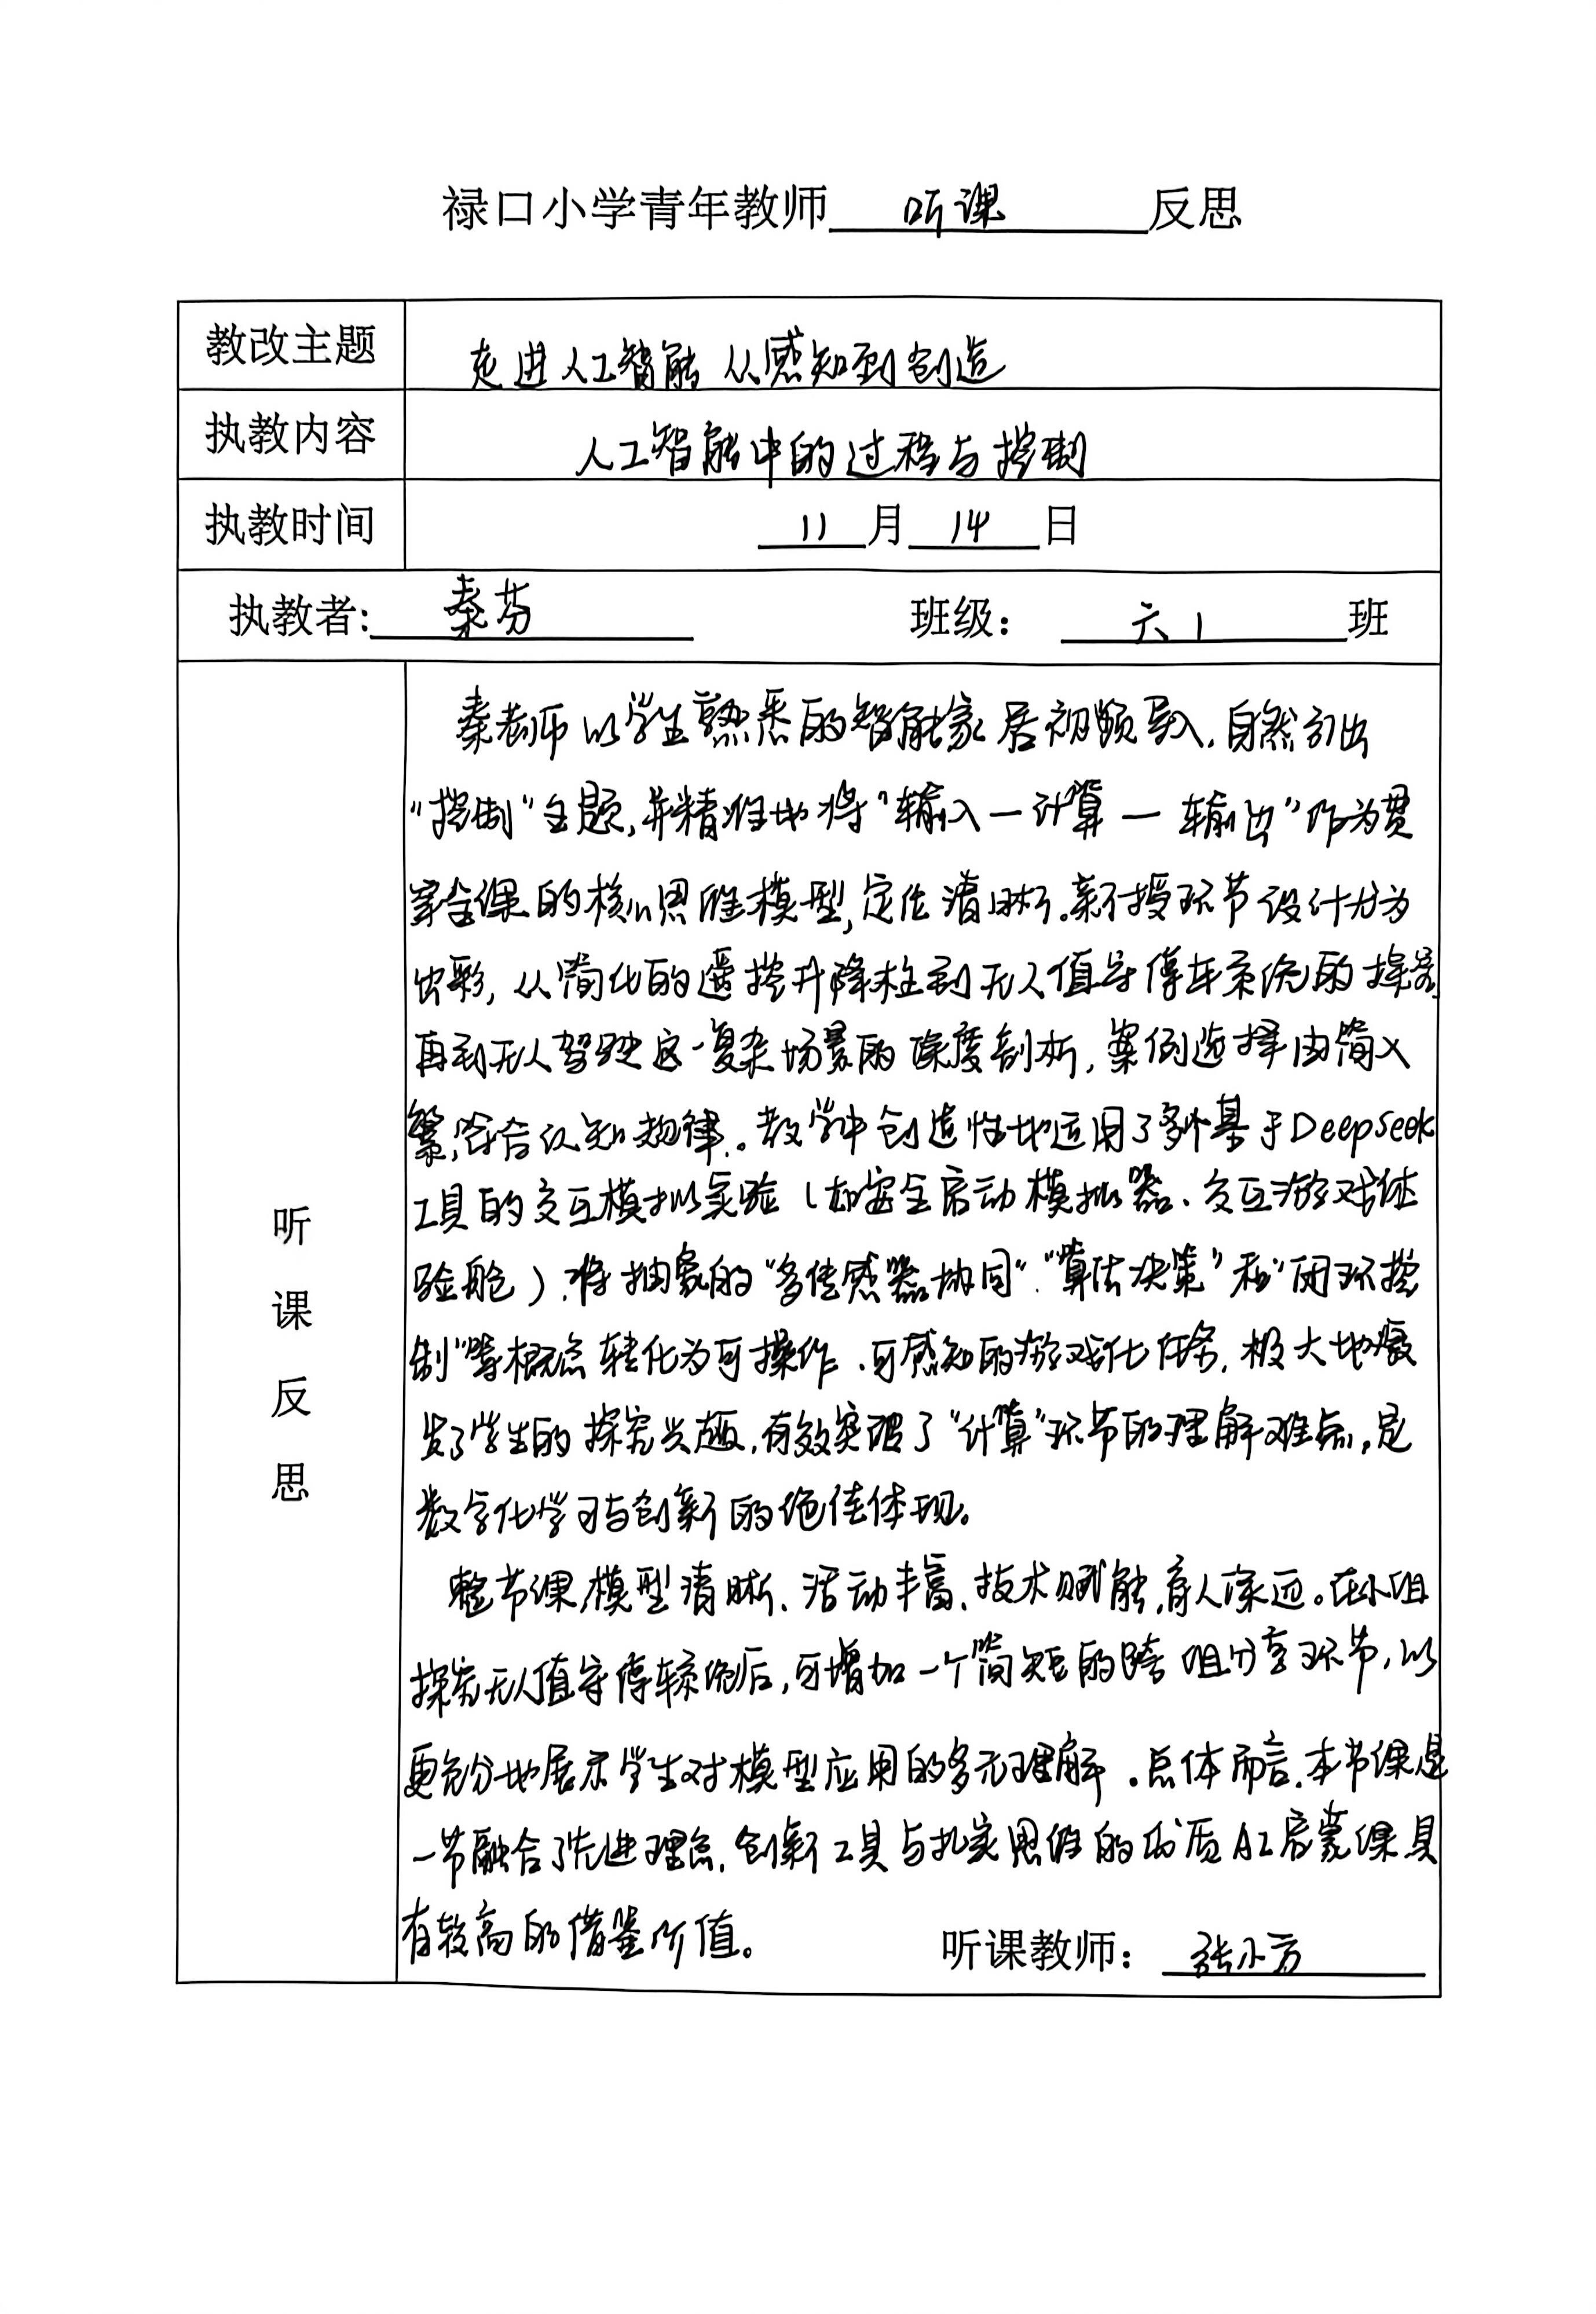 禄口小学青年教师 听课 反思
教改主题 走进人工智能 从感知到创造
执教内容 人工智能中的过程与控制
执教时间 11月14日
执教者: 秦芬 班级： 六1班
听课反思
秦老师以学生熟悉的智能家居视频导入,自然引出
“控制”主题,并精准地将“输入—计算—输出”作为贯
穿全课的核心思维模型,定位清晰。新授环节设计尤为
出彩,从简化的遥控升降柱到无人值守停车系统的探究,
再到无人驾驶这一复杂场景的深度剖析,案例选择由简入
繁,符合认知规律。教学中创造性地运用了多个基于DeepSeek
工具的交互模拟实验(如安全启动模拟器、交互游戏体
验舱),将抽象的“多传感器协同”、“算法决策”和“闭环控
制”等概念转化为可操作、可感知的游戏化任务,极大地激
发了学生的探究兴趣,有效突破了“计算”环节的理解难点,是
数字化学习与创新的绝佳体现。
整节课,模型清晰、活动丰富、技术赋能,育人深远。在小组
探究无人值守停车系统后,可增加一个简短的跨组分享环节,以
更充分地展示学生对模型应用的多元理解。总体而言,本节课是
一节融合了先进理念,创新工具与扎实思维的优质AI启蒙课具
有较高的借鉴价值。
听课教师： 张小方